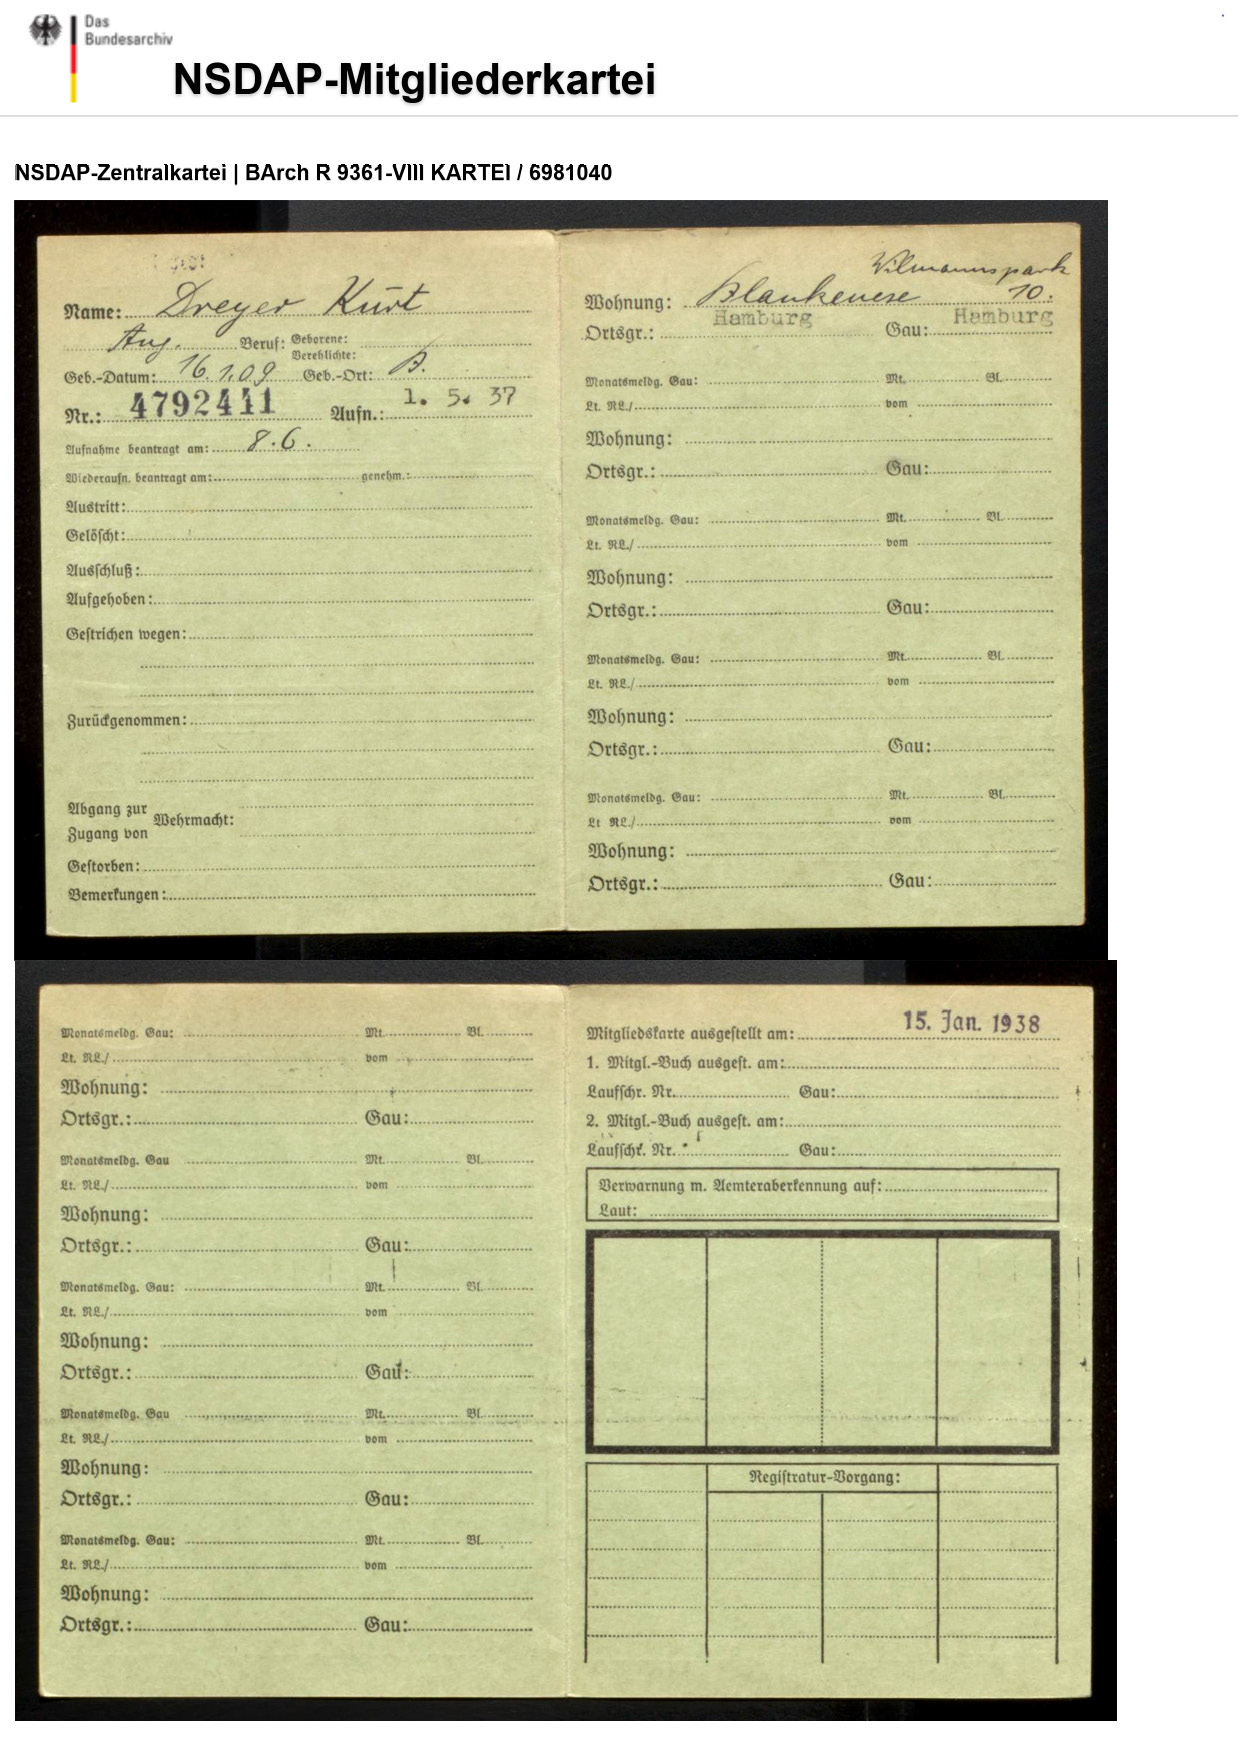 Das
Bundesarchiv
NSDAP-Mitgliederkartei
NSDAP-Zentralkartei | BArch R 9361-VIII KARTEI / 6981040
Name: Dreyer Kurt
Ang. Beruf: Geborene:
Verehlichte:
Geb.-Datum: 16.1.09 Geb.-Ort: B.
Nr.: 4792411 Aufn.: 1. 5. 37
Aufnahme beantragt am: 8.6.
Wiederaufn. beantragt am: genehm.:
Austritt:
Gelöscht:
Ausschluß:
Aufgehoben:
Gestrichen wegen:
Zurückgenommen:
Abgang zur
Zugang von
Wehrmacht:
Gestorben:
Bemerkungen:
Wilmannspark
Wohnung: Blankenese 10.
Ortsgr.: Hamburg Gau: Hamburg
Monatsmeldg. Gau: Mt. Bl.
Lt. RL./ vom
Wohnung:
Ortsgr.: Gau:
Monatsmeldg. Gau: Mt. Bl.
Lt. RL./ vom
Wohnung:
Ortsgr.: Gau:
Monatsmeldg. Gau: Mt. Bl.
Lt. RL./ vom
Wohnung:
Ortsgr.: Gau:
Monatsmeldg. Gau: Mt. Bl.
Lt RL./ vom
Wohnung:
Ortsgr.: Gau:
Monatsmeldg. Gau: Mt. Bl.
Lt. RL./ vom
Wohnung:
Ortsgr.: Gau:
Monatsmeldg. Gau Mt. Bl.
Lt. RL./ vom
Wohnung:
Ortsgr.: Gau:
Monatsmeldg. Gau: Mt. Bl.
Lt. RL./ vom
Wohnung:
Ortsgr.: Gau:
Monatsmeldg. Gau Mt. Bl.
Lt. RL./ vom
Wohnung:
Ortsgr.: Gau:
Monatsmeldg. Gau: Mt. Bl.
Lt. RL./ vom
Wohnung:
Ortsgr.: Gau:
Mitgliedskarte ausgestellt am: 15. Jan. 1938
1. Mitgl.-Buch ausgest. am:
Laufschr. Nr. Gau:
2. Mitgl.-Buch ausgest. am:
Laufschr. Nr. Gau:
Verwarnung m. Aemteraberkennung auf:
Laut:
Registratur-Vorgang: